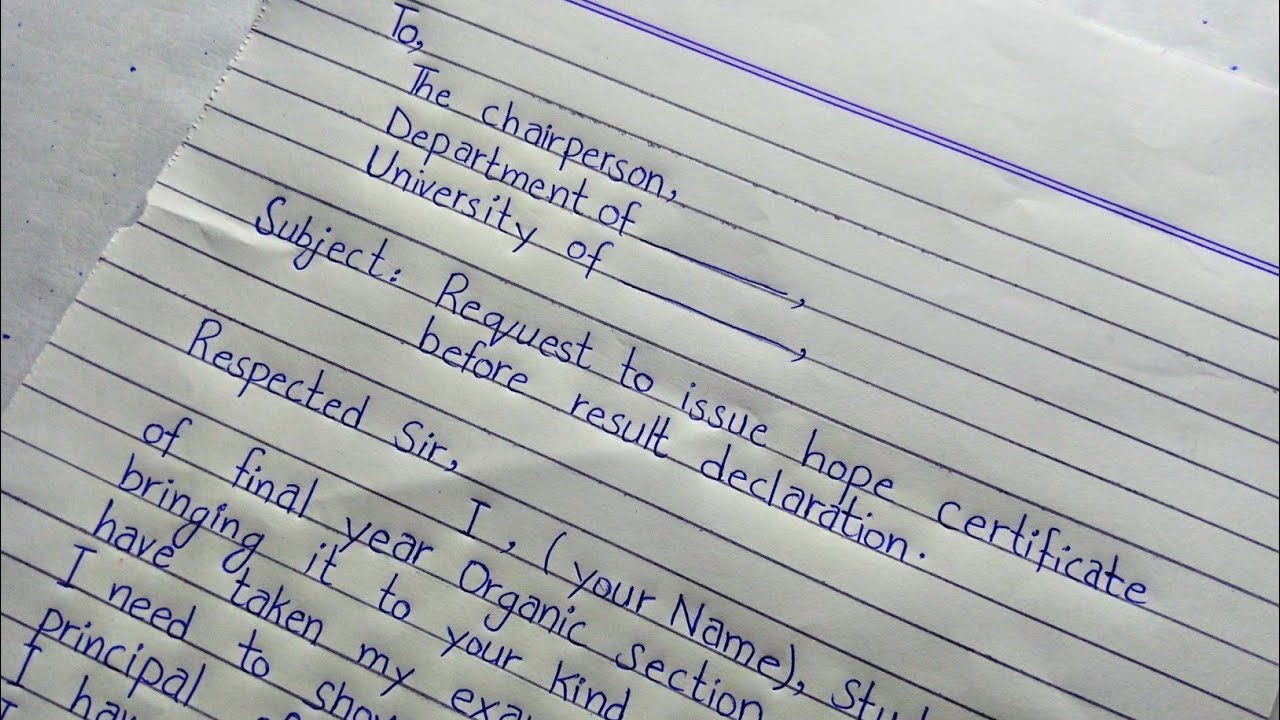 To,
The chairperson,
Department of ________,
University of ________,
Subject: Request to issue hope certificate
before result declaration.
Respected Sir,
I, (your Name),
of final year Organic section
bringing it to your kind
have taken my
I need to
principal
I